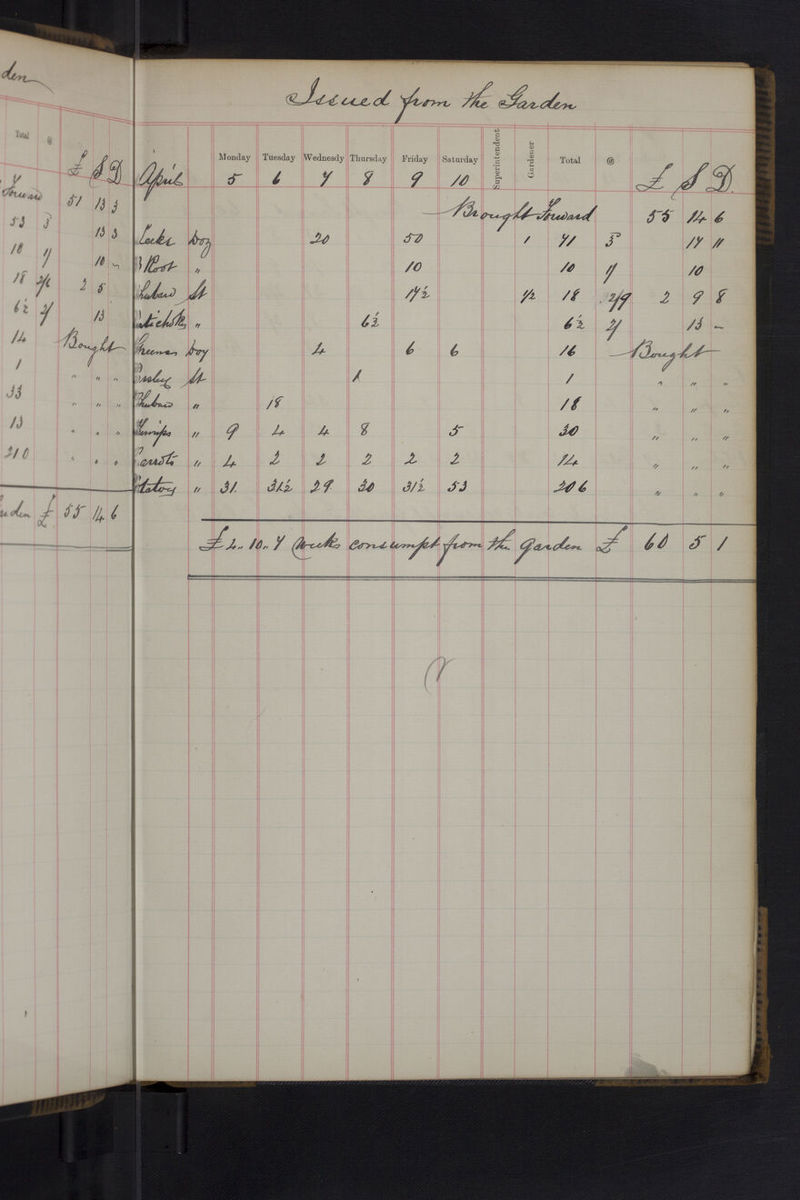 den
Total @ £ S D
Forward 51 13 3
53 3 13 3
10 1/ 10 -
18 2/6 2 5
6½ 2/ 13
14 Bought
1 " " "
33 " " "
13 " " "
210 " " "
£ 55 14 6
Issued from the Garden
April Monday 5 Tuesday 6 Wednesdy 7 Thursday 8 Friday 9 Saturday 10 Superintendent Gardener Total @ £ S D.
Brought Forward 55 14 6
Leeks Doz 20 50 1 71 3 17 11
B Root " 10 10 1/ 10
Rhubard St 17½ ½ 18 2/9 2 9 8
Artichoks " 6½ 6½ 2/ 13 -
Greenes Doz 4 6 6 16 Bought
Parsley St 1 1 " " "
Rhubard " 18 18 " " "
Turnips " 9 4 4 8 5 30 " " "
Carrots " 4 2 2 2 2 2 14 " " "
Potatoes " 31 31½ 29 30 31½ 53 206 " " "
£ 4 .. 10 .. 7 Weeks consumpt from the Garden £ 60 5 1